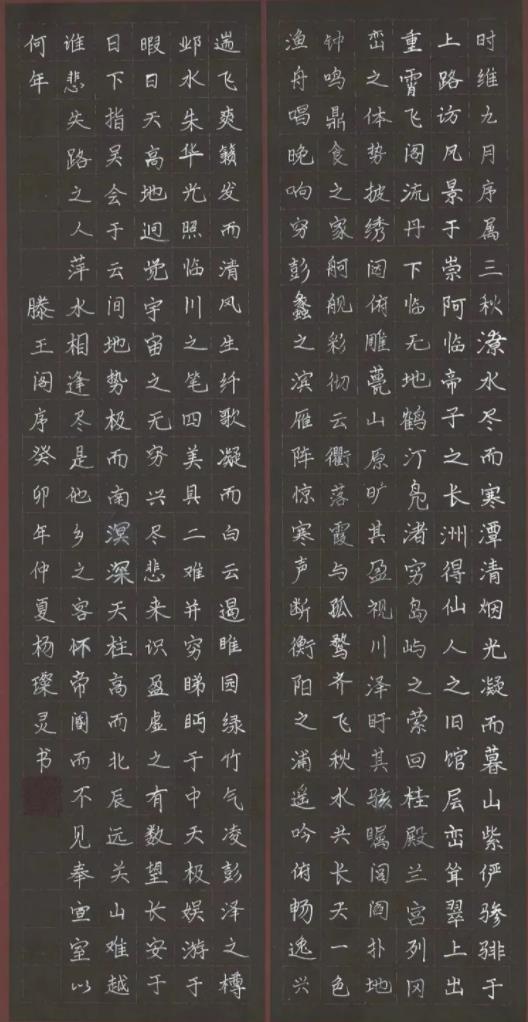 时维九月序属三秋潦水尽而寒潭清烟光凝而暮山紫俨骖騑于
上路访风景于崇阿临帝子之长洲得仙人之旧馆层峦耸翠上出
重霄飞阁流丹下临无地鹤汀凫渚穷岛屿之萦回桂殿兰宫列冈
峦之体势披绣闼俯雕甍山原旷其盈视川泽盱其骇瞩闾阎扑地
钟鸣鼎食之家舸舰彩彻云衢落霞与孤鹜齐飞秋水共长天一色
渔舟唱晚响穷彭蠡之滨雁阵惊寒声断衡阳之浦遥吟俯畅逸兴
遄飞爽籁发而清风生纤歌凝而白云遏睢园绿竹气凌彭泽之樽
邺水朱华光照临川之笔四美具二难并穷睇眄于中天极娱游于
暇日天高地迥觉宇宙之无穷兴尽悲来识盈虚之有数望长安于
日下指吴会于云间地势极而南溟深天柱高而北辰远关山难越
谁悲失路之人萍水相逢尽是他乡之客怀帝阍而不见奉宣室以
何年 滕王阁序癸卯年仲夏杨璨灵书